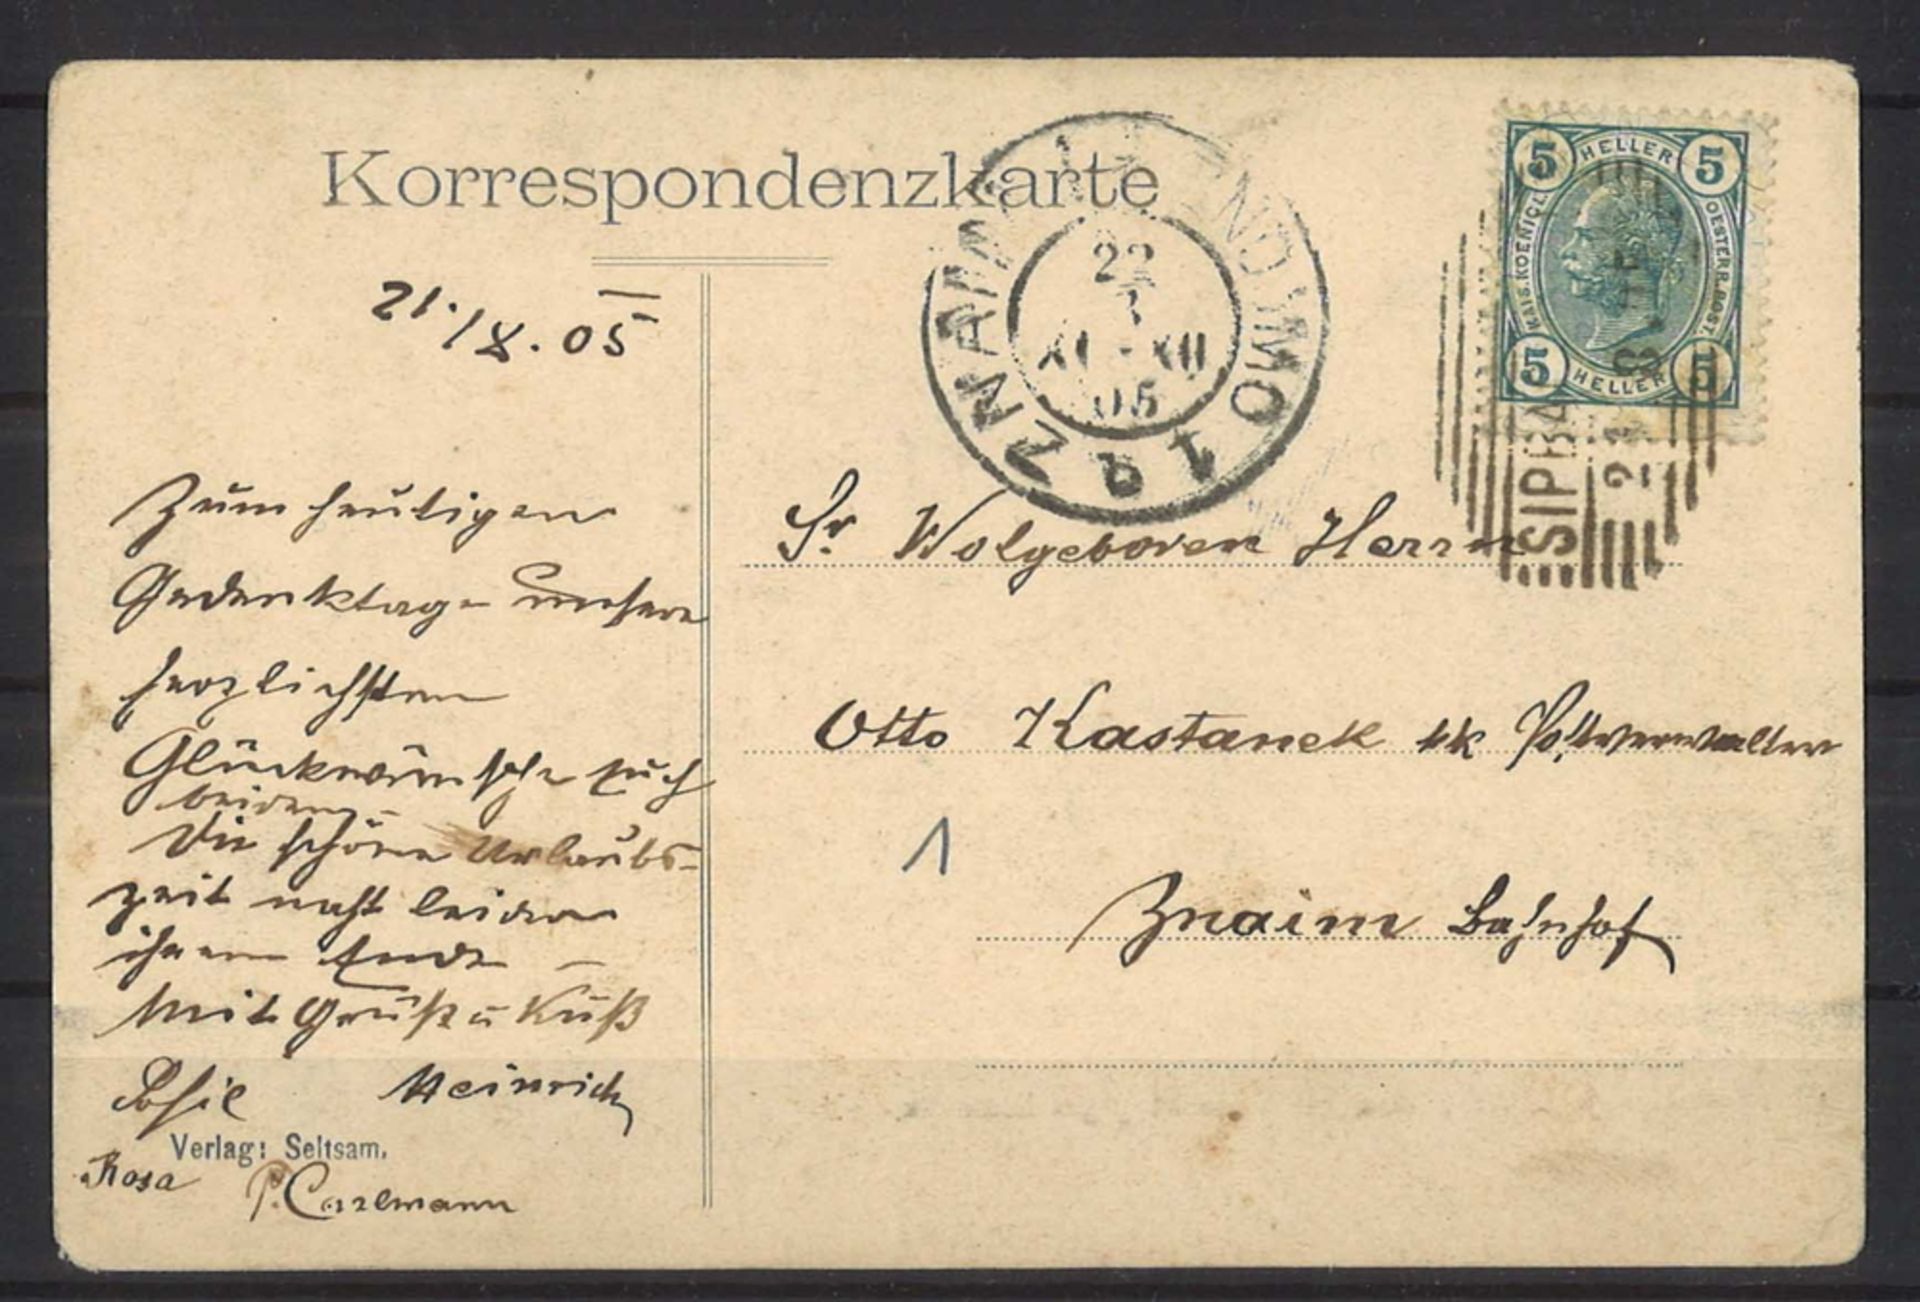 Korrespondenzkarte
5 HELLER 5
KAIS. KOENIGL. OESTERR. POST.
5 HELLER 5
22
XI-XII
05
ZNAIM ZNOJMO 1
21
21./8. 05
Zum heutigen
Gedenktage unsere
herzlichsten
Glückwünsche Euch
beiden –
Die schöne Urlaubs-
zeit naht leider
ihrem Ende –
Mit Gruß u Kuß
Heinrich
Verlag: Seltsam.
Rosa
Sr Wolgeboren Herrn
Otto Kastanek kk Postverwalter
1
Znaim Bahnhof